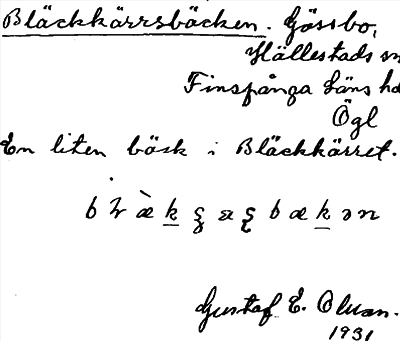 Bläckkärrsbäcken. Gässbo,
Hällestads sn
Finspånga läns hd
Ögl
En liten bäck i Bläckkärret.
Gustaf E. Olsson.
1931